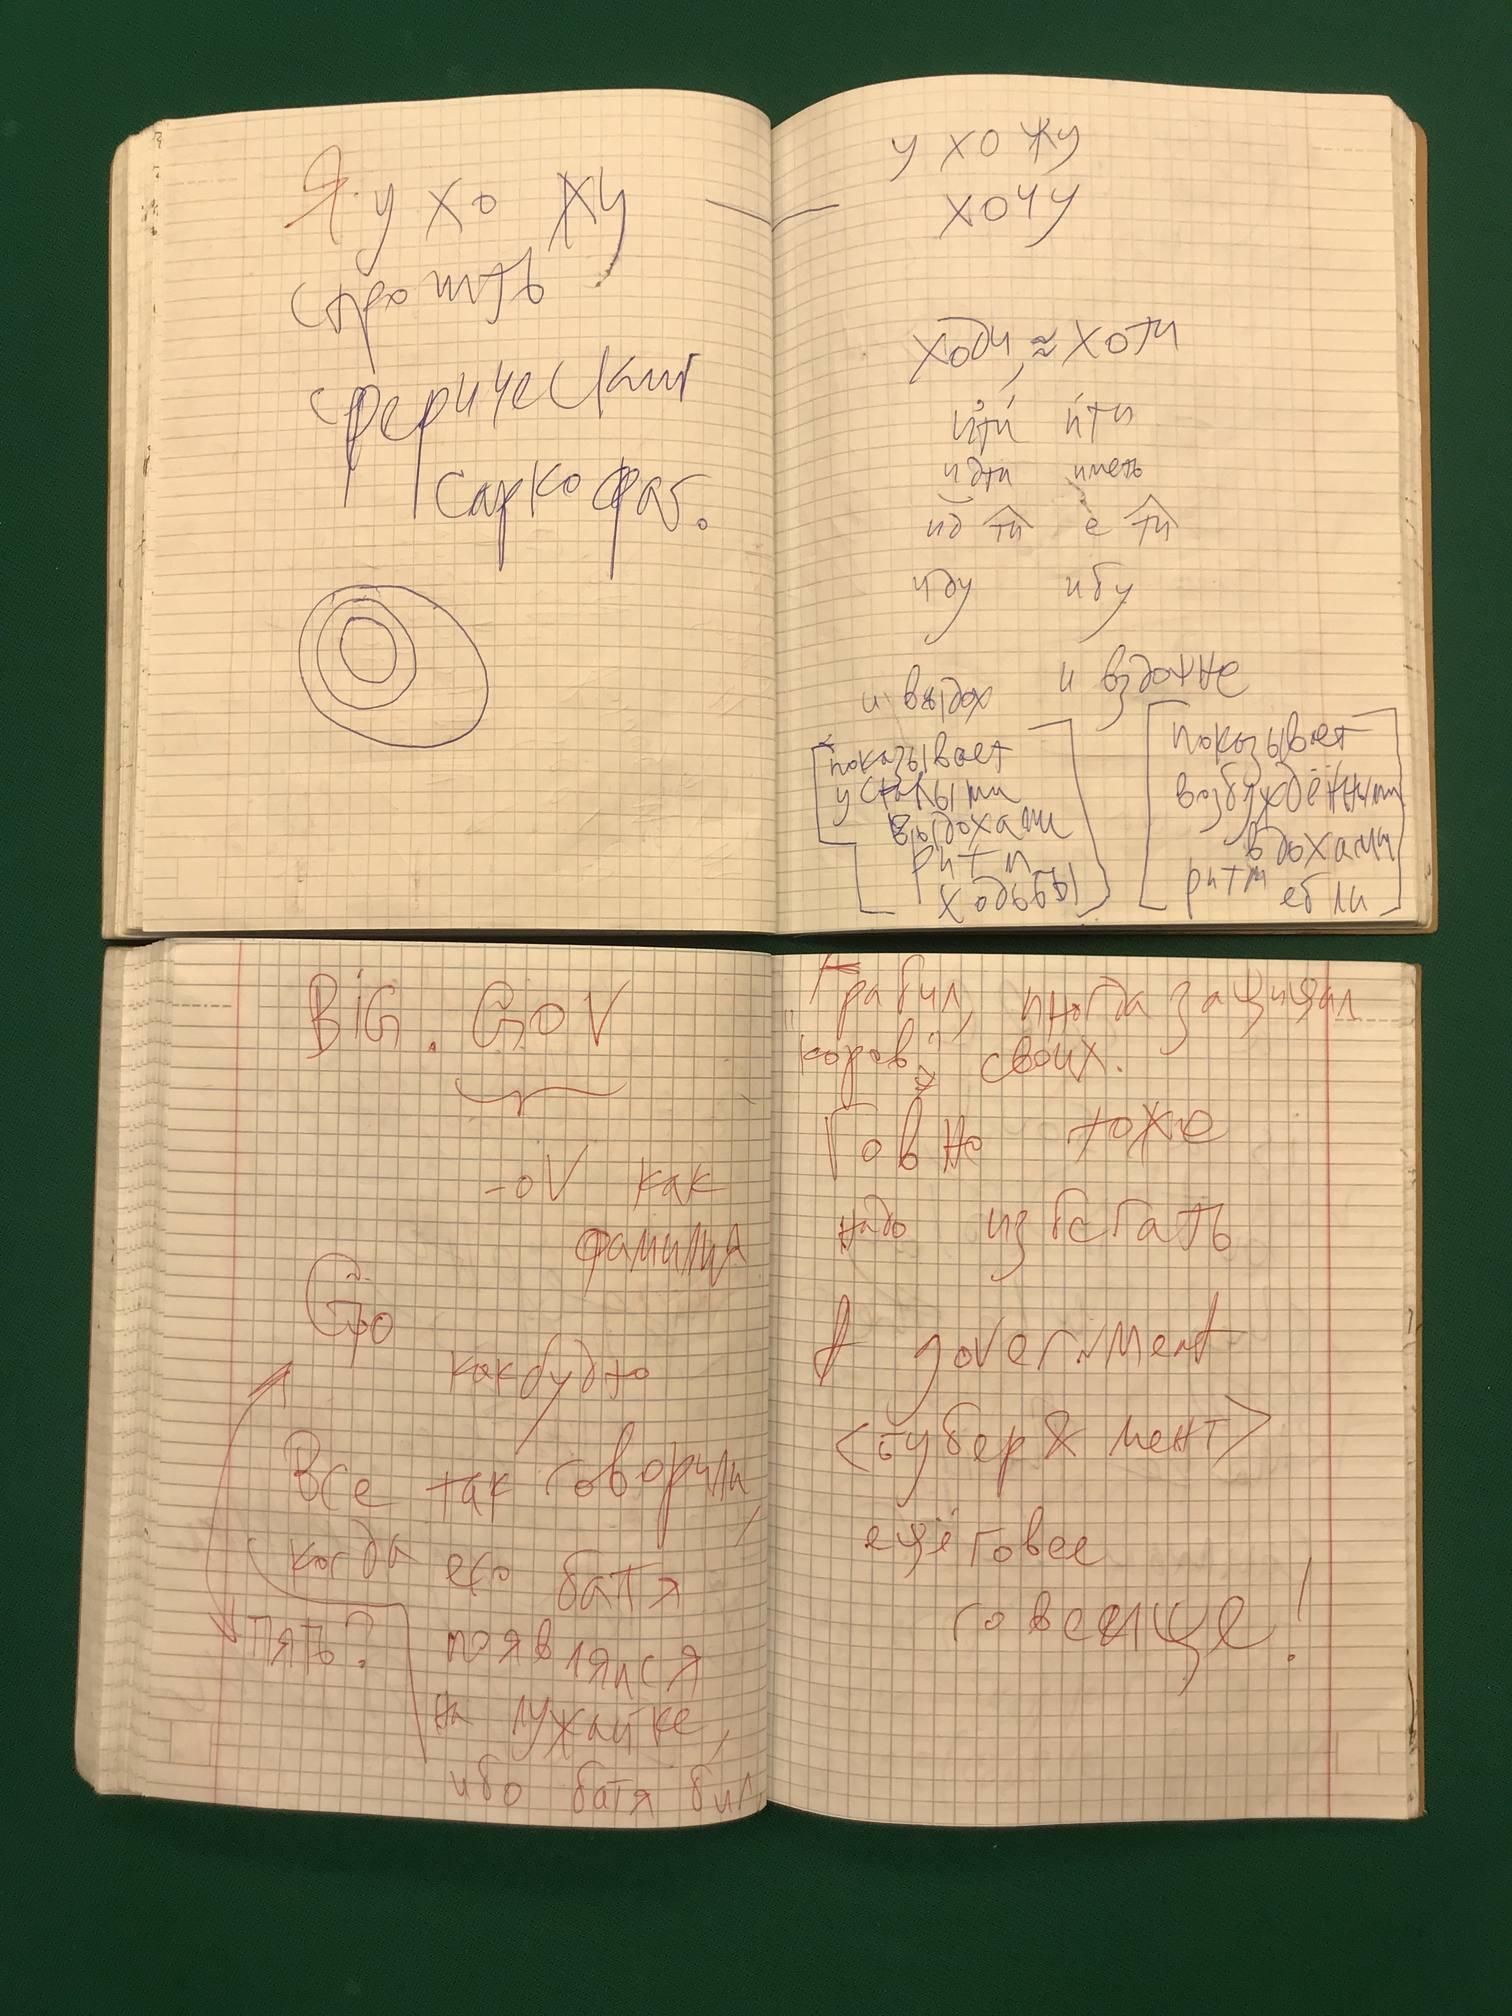 Я ухожу
строить
сферический
саркофаг.
ухожу
хочу
ходи, ≈ хоти
идти иметь
ид ти е ти
иду ибу
и выдох и вздохне
показывает
усталыми
выдохами
ритм
ходьбы
показывает
возбуждёнными
вдохами
ритм ебли
BiG. GoV
-oV как
фамилия
как будто
Все так говорили,
когда его батя
пять? появлялся
на лужайке,
ибо батя бил,
Грабил, иногда защищал
коров своих.
Говно тоже
надо избегать
А government
<губер & мент>
ещё говее
говенище!